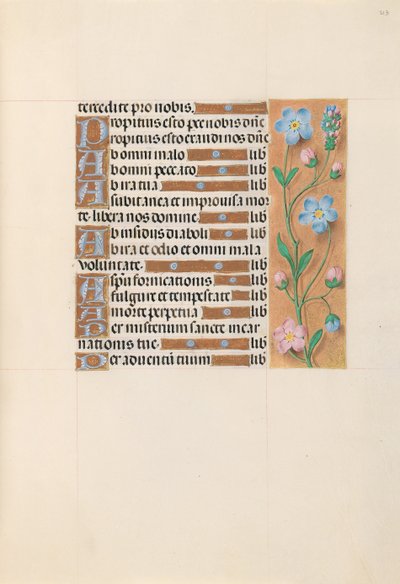 213
tercedite pro nobis.
Propitius esto p̄ce nobis dñe
Propitius esto exaudi nos dñe
Ab omni malo lib
Ab omni peccato lib
Ab ira tua lib
A subitanea et improuisa mor
te. libera nos domine. lib
Ab insidiis diaboli lib
Ab ira et odio et omni mala
voluntate. lib
A spū fornicationis lib
A fulgure et tempestate lib
A morte perpetua lib
Per misterium sancte incar
nationis tue. lib
Per aduentū tuum lib